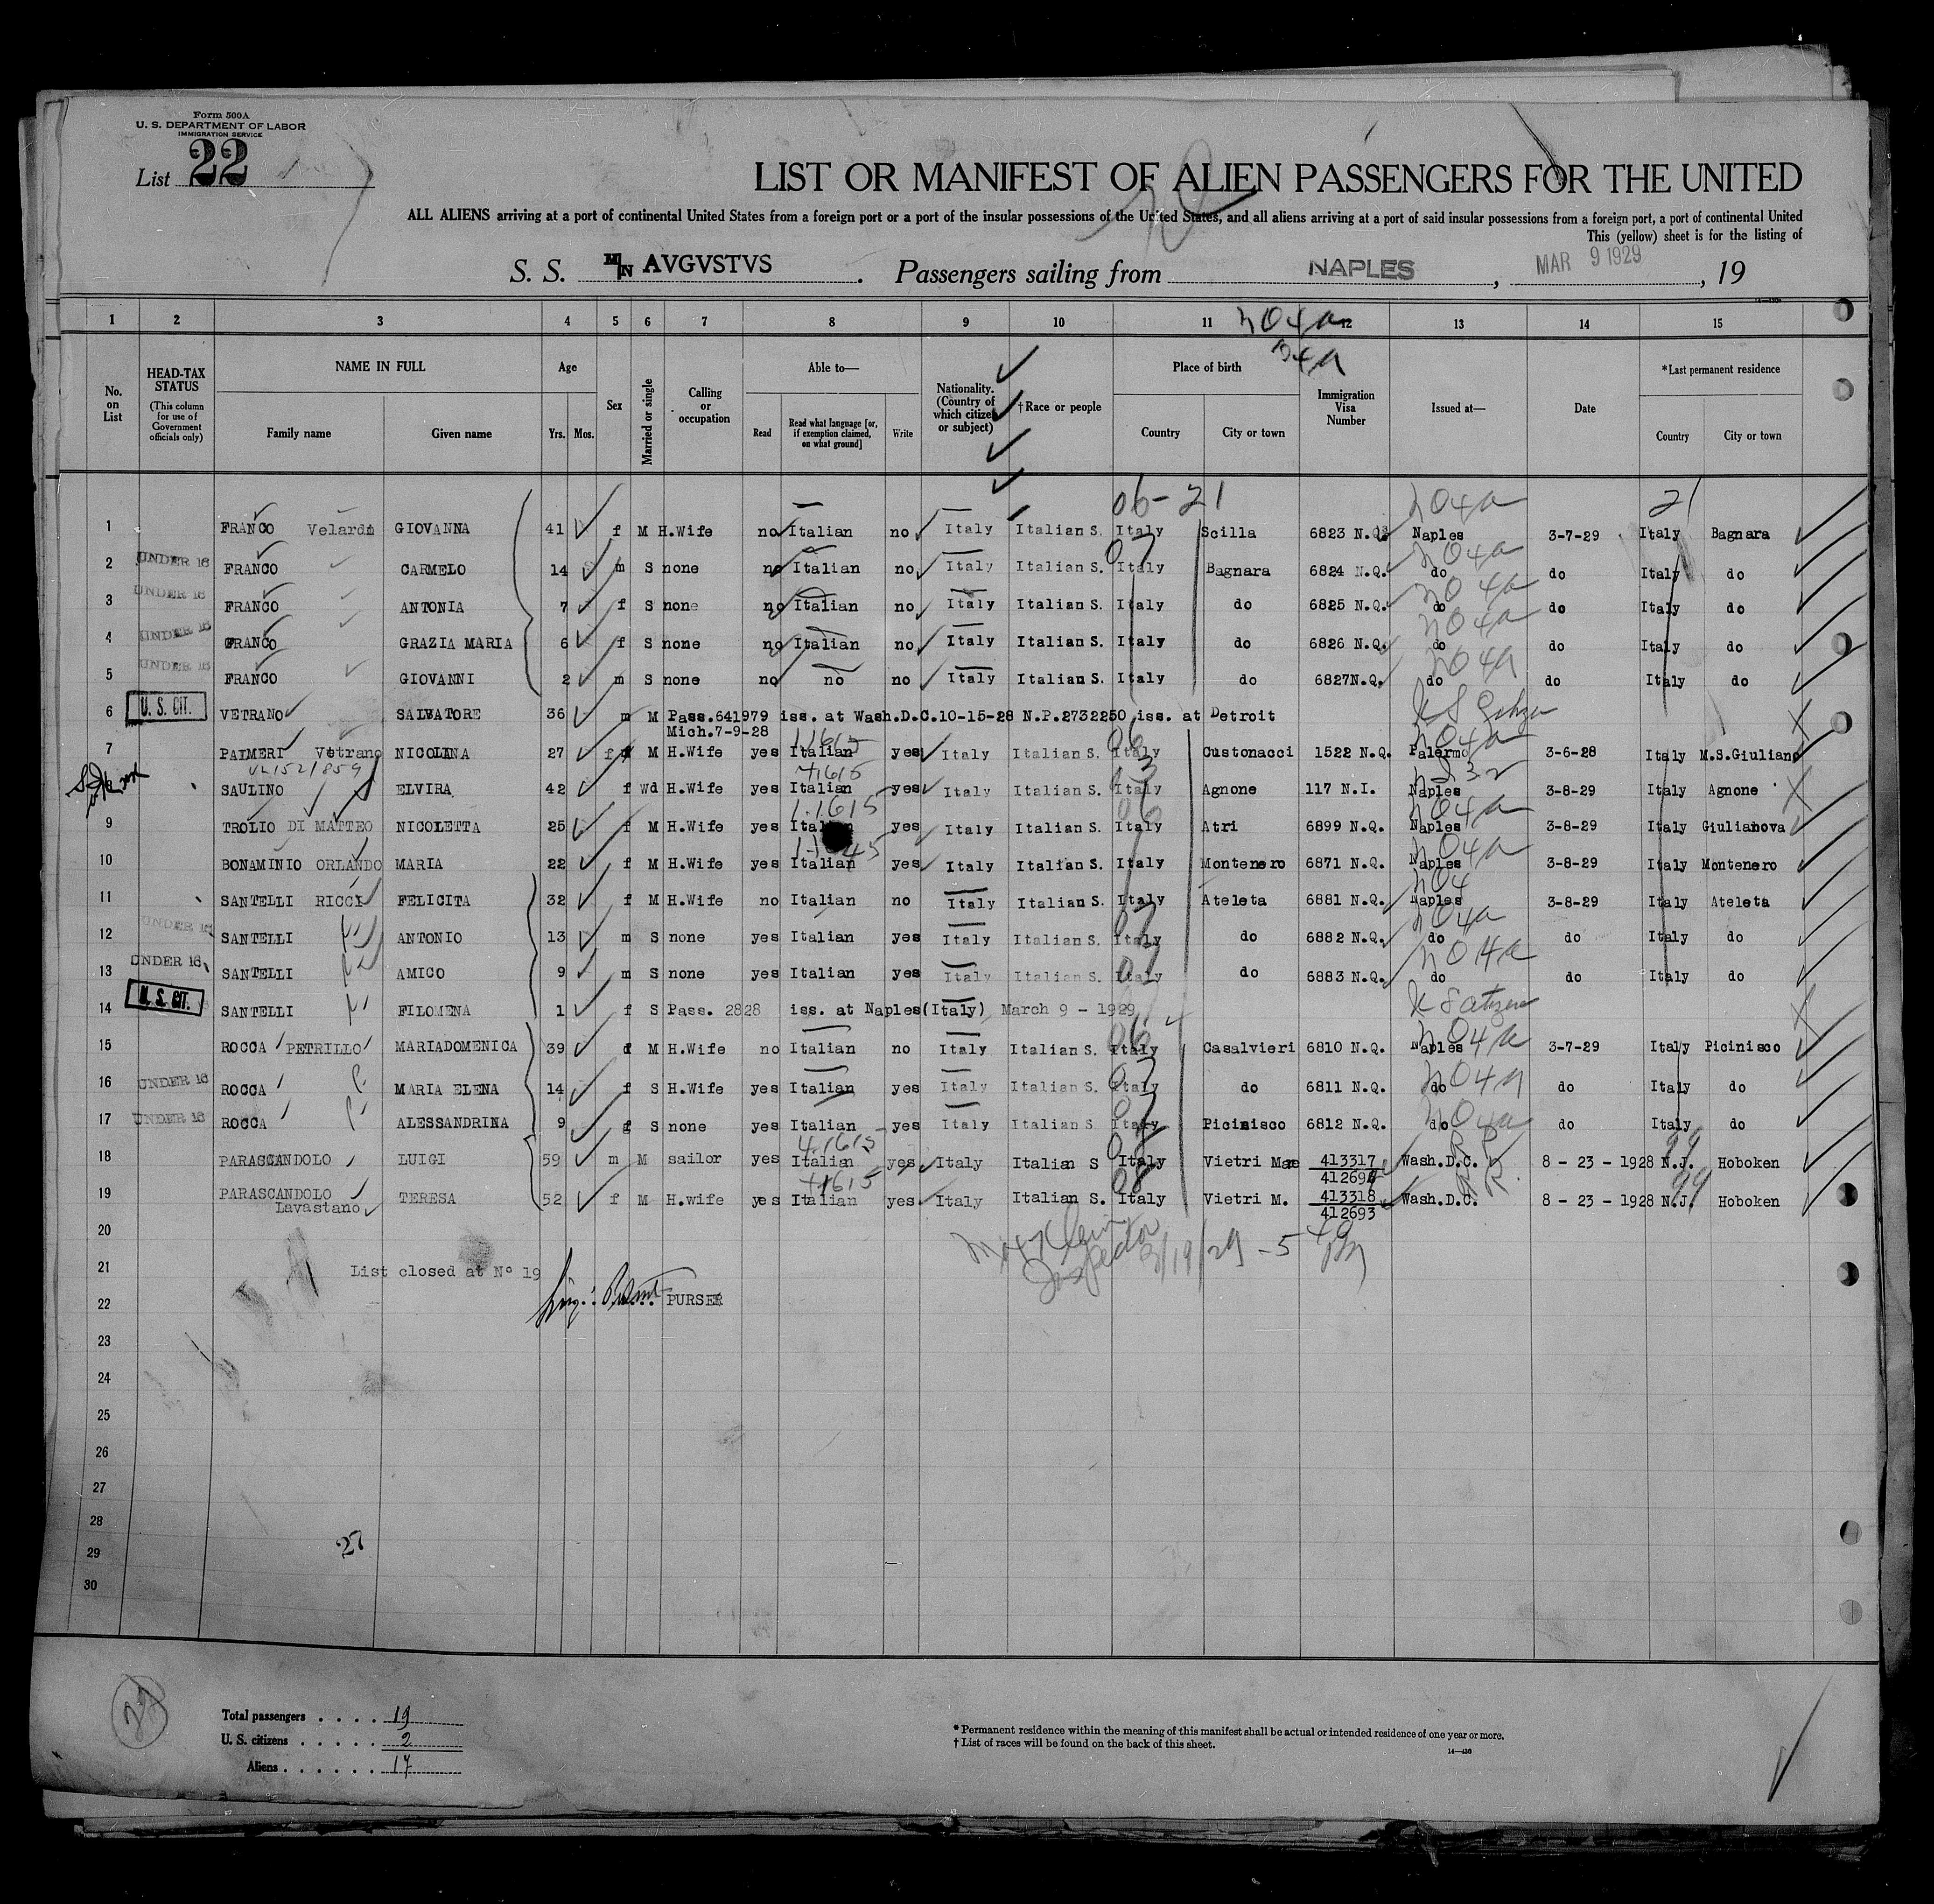 Form 500A
U. S. DEPARTMENT OF LABOR
IMMIGRATION SERVICE
List 22
LIST OR MANIFEST OF ALIEN PASSENGERS FOR THE UNITED
ALL ALIENS arriving at a port of continental United States from a foreign port or a port of the insular possessions of the United States, and all aliens arriving at a port of said insular possessions from a foreign port, a port of continental United
This (yellow) sheet is for the listing of
S. S. M/N AVGVSTVS. Passengers sailing from NAPLES, MAR 9 1929, 19
1 2 3 4 5 6 7 8 9 10 11 12 13 14 15
No. on List
HEAD-TAX STATUS
(This column for use of Government officials only)
NAME IN FULL
Family name Given name
Age
Yrs. Mos.
Sex
Married or single
Calling or occupation
Able to—
Read Read what language [or, if exemption claimed, on what ground] Write
Nationality. (Country of which citizen or subject)
†Race or people
Place of birth
Country City or town
Immigration Visa Number
Issued at—
Date
*Last permanent residence
Country City or town
06-21 21
1 FRANCO Velardi GIOVANNA 41 f M H.Wife no Italian no Italy Italian S. Italy Scilla 6823 N.Q. Naples 3-7-29 Italy Bagnara
2 UNDER 16 FRANCO CARMELO 14 m S none no Italian no Italy Italian S. Italy Bagnara 6824 N.Q. do do Italy do
3 UNDER 16 FRANCO ANTONIA 7 f S none no Italian no Italy Italian S. Italy do 6825 N.Q. do do Italy do
4 UNDER 16 FRANCO GRAZIA MARIA 6 f S none no Italian no Italy Italian S. Italy do 6826 N.Q. do do Italy do
5 UNDER 16 FRANCO GIOVANNI 2 m S none no no no Italy Italian S. Italy do 6827N.Q. do do Italy do
6 U. S. CIT. VETRANO SALVATORE 36 m M Pass.641979 iss. at Wash.D.C.10-15-28 N.P.2732250 iss. at Detroit
Mich.7-9-28
7 PALMERI Vetrano NICOLINA 27 f M H.Wife yes Italian yes Italy Italian S. Italy Custonacci 1522 N.Q. Palermo 3-6-28 Italy M.S.Giuliano
SAULINO ELVIRA 42 f Wd H.Wife yes Italian yes Italy Italian S. Italy Agnone 117 N.I. Naples 3-8-29 Italy Agnone
9 TROLIO DI MATTEO NICOLETTA 25 f M H.Wife yes Italian yes Italy Italian S. Italy Atri 6899 N.Q. Naples 3-8-29 Italy Giulianova
10 BONAMINIO ORLANDO MARIA 22 f M H.Wife yes Italian yes Italy Italian S. Italy Montenero 6871 N.Q. Naples 3-8-29 Italy Montenero
11 SANTELLI RICCI FELICITA 32 f M H.Wife no Italian no Italy Italian S. Italy Ateleta 6881 N.Q. Naples 3-8-29 Italy Ateleta
12 UNDER 16 SANTELLI ANTONIO 13 m S none yes Italian yes Italy Italian S. Italy do 6882 N.Q. do do Italy do
13 UNDER 16 SANTELLI AMICO 9 m S none yes Italian yes Italy Italian S. Italy do 6883 N.Q. do do Italy do
14 U. S. CIT. SANTELLI FILOMENA 1 f S Pass. 2828 iss. at Naples(Italy) March 9 - 1929
15 ROCCA PETRILLO MARIADOMENICA 39 f M H.Wife no Italian no Italy Italian S. Italy Casalvieri 6810 N.Q. Naples 3-7-29 Italy Picinisco
16 UNDER 16 ROCCA MARIA ELENA 14 f S H.Wife yes Italian yes Italy Italian S. Italy do 6811 N.Q. do do Italy do
17 UNDER 16 ROCCA ALESSANDRINA 9 f S none yes Italian yes Italy Italian S. Italy Picinisco 6812 N.Q. do do Italy do
18 PARASCANDOLO LUIGI 59 m M sailor yes Italian yes Italy Italian S Italy Vietri Mare 413317 Wash.D.C. 8 - 23 - 1928 N.J. Hoboken
412694
19 PARASCANDOLO TERESA 52 f M H.wife yes Italian yes Italy Italian S. Italy Vietri M. 413318 Wash.D.C. 8 - 23 - 1928 N.J. Hoboken
Lavastano 412693
20
Inspector 3/19/29
21 List closed at Nº 19
22 PURSER
23
24
25
26
27
28
29 27
30
Total passengers . . . . 19
U. S. citizens . . . . . 2
Aliens . . . . . . 17
* Permanent residence within the meaning of this manifest shall be actual or intended residence of one year or more.
† List of races will be found on the back of this sheet.
14—430